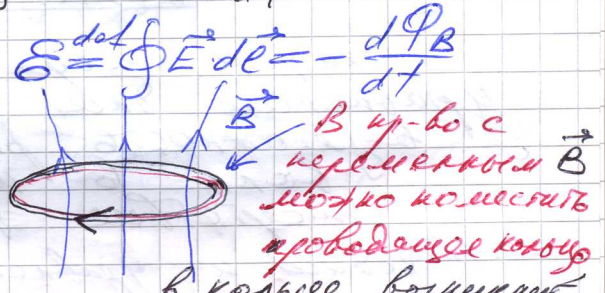 ℰ def= ∮ E⃗ · dℓ⃗ = - dΦ_B / dt
B⃗
В пр-во с
переменным B⃗
можно поместить
проводящее кольцо
в кольце возникает